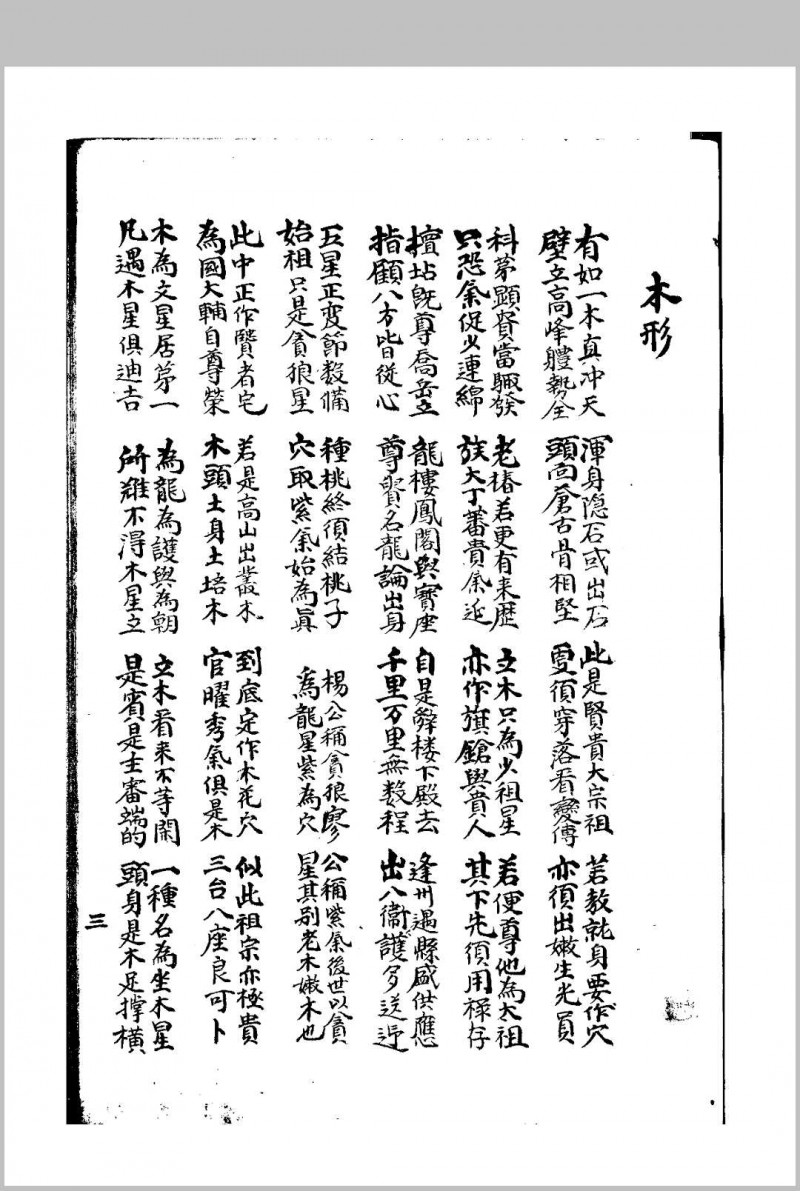 木形
有如一木直冲天
壁立高峰體勢全
渾身隐石或出石
頭面蒼古骨相堅
此是賢貴大宗祖
更須穿落看變傳
若教就身要作穴
亦須出嫩生光員
科第顯貴當驟發
只恐氣促少連綿
老椿若更有来歷
族大丁蕃貴系延
立木只為少祖星
亦作旗鎗與貴人
若便尊他為太祖
其下先須用祿存
坫既尊喬岳立
指顧八方皆從心
龍樓鳳閣與寶座
尊貴名龍論出身
自是辞楼下殿去
千里万里無数程
逢州遇縣盛供應
出入衞護多送迎
五星正变節数備
始祖只是貪狼星
種桃終須結桃子
穴取紫氣始為真
楊公稱貪狼廖公稱紫氣後世以貪
為龍星紫為穴星其别老木嫩木也
此中正作賢者宅
為國大輔自尊榮
若是高山出叢木
木頭土身土培木
到底定作木花穴
官曜秀氣俱是木
似此祖宗亦極貴
三台八座良可卜
木為文星居第一
凡遇木星俱迪吉
為龍為護與為朝
所难不得木星立
立木看来不等閑
是賓是主審端的
一種名為坐木星
頭身是木足撑橫
三